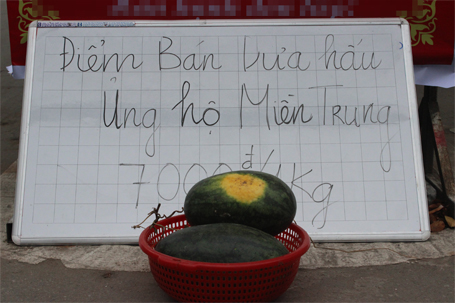 Điểm Bán Dưa hấu
Ủng hộ Miền Trung
7000đ/1Kg